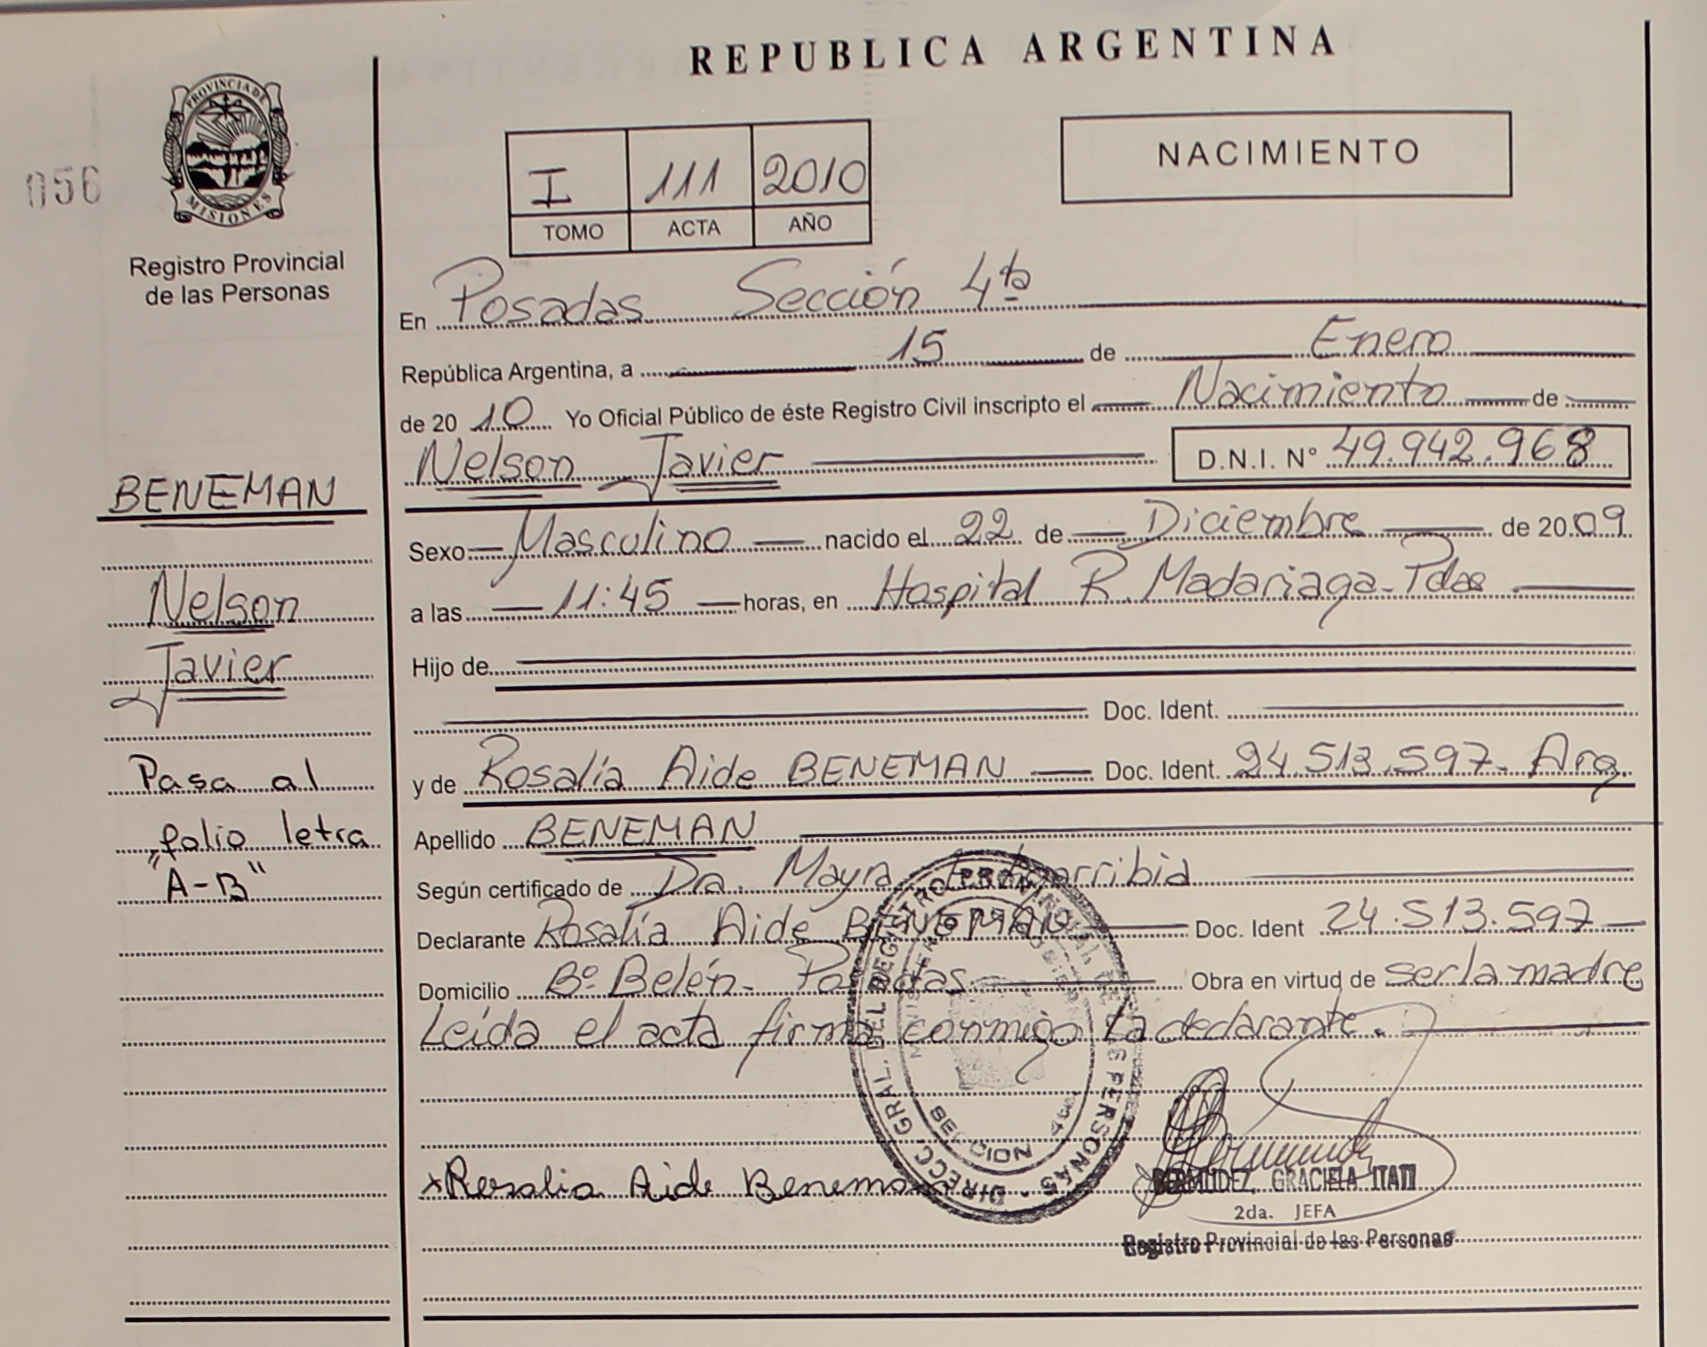 REPUBLICA ARGENTINA
PROVINCIA DE
MISIONES
056
Registro Provincial
de las Personas
I 111 2010
TOMO ACTA AÑO
NACIMIENTO
En Posadas Sección 4ta
República Argentina, a 15 de Enero
de 20 10 Yo Oficial Público de éste Registro Civil inscripto el Nacimiento de
Nelson Javier D.N.I. N° 49.942.968
BENEMAN
Nelson
Javier
Pasa al
folio letra
"A-B"
Sexo Masculino nacido el 22 de Diciembre de 20 09
a las 11:45 horas, en Hospital R. Madariaga-Pdas
Hijo de
Doc. Ident.
y de Rosalía Aide BENEMAN Doc. Ident. 24.513.597- Arg.
Apellido BENEMAN
Según certificado de Dra. Mayra
Declarante Rosalía Aide BENEMAN Doc. Ident 24.513.597
Domicilio Bº Belén- Posadas Obra en virtud de ser la madre
Leída el acta firma conmigo la declarante.
DIRECC. GRAL. DEL REGISTRO PROVINCIAL DE LAS PERSONAS
x Rosalia Aide Beneman
BERMUDEZ, GRACIELA ITATI
2da. JEFA
Registro Provincial de las Personas